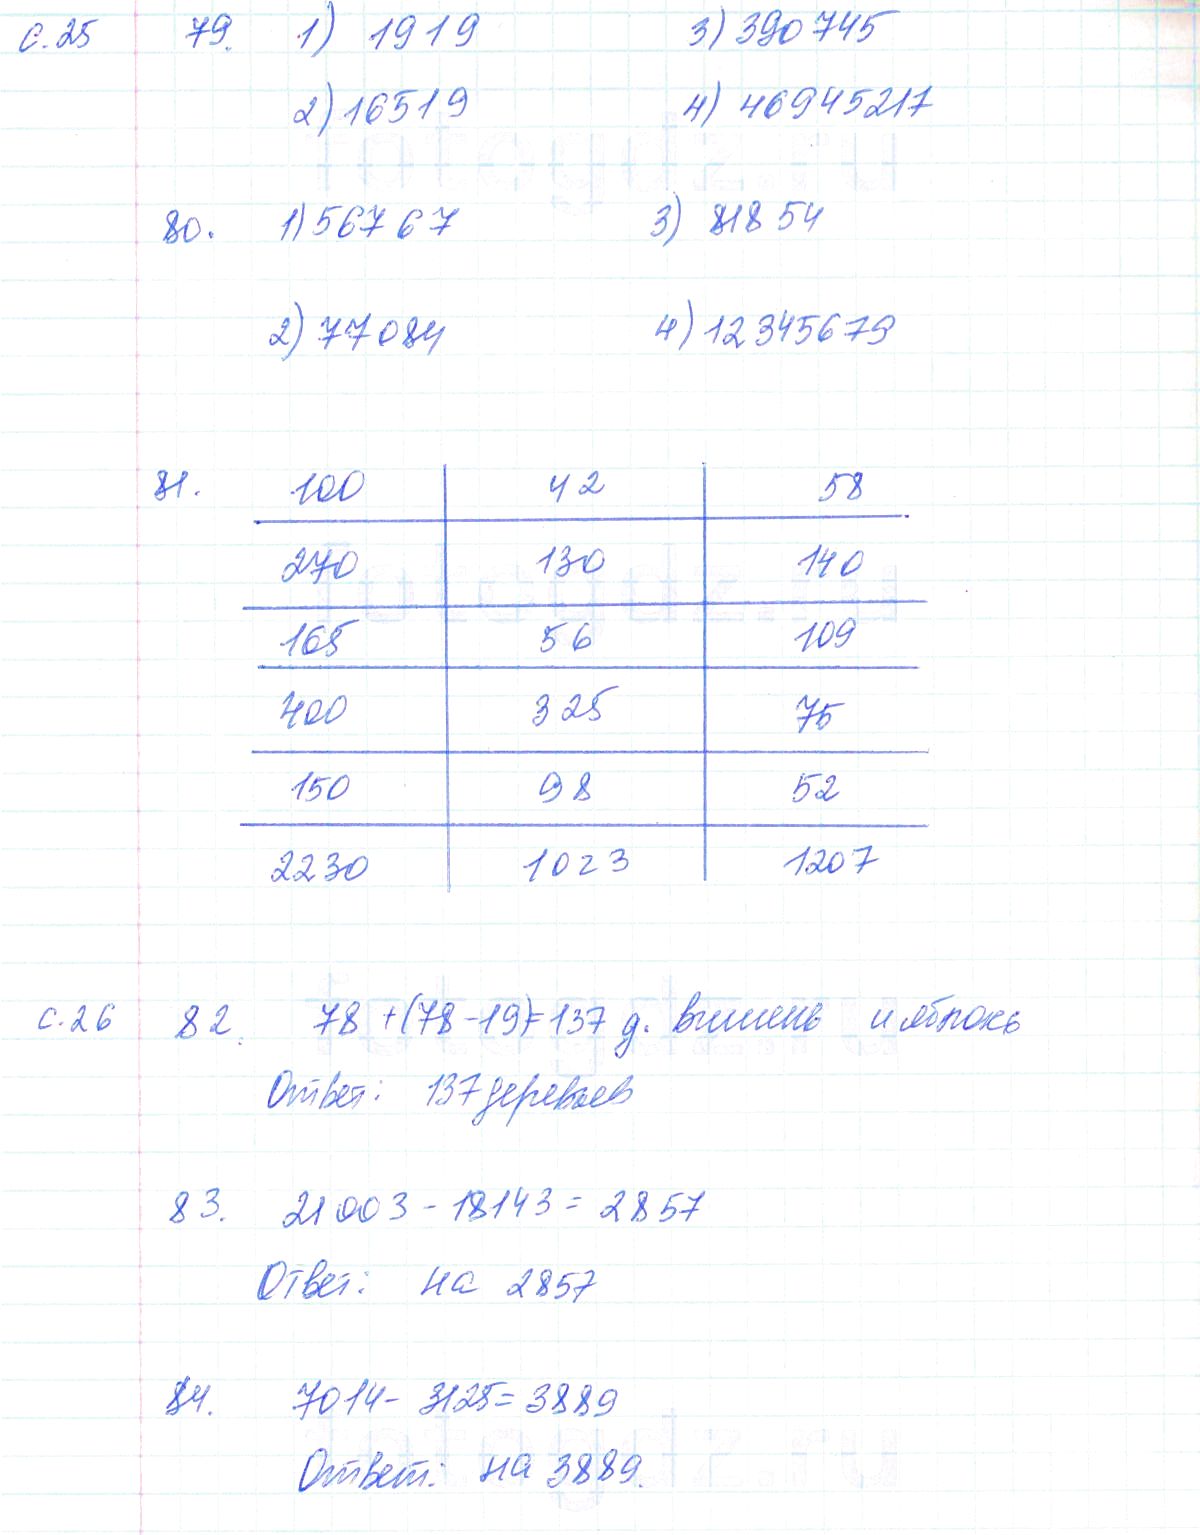 с.25 79. 1) 1919 3) 390745
2) 16519 4) 46945217
80. 1) 56767 3) 81854
2) 77084 4) 12345679
81. 100 42 58
270 130 140
165 56 109
400 325 75
150 98 52
2230 1023 1207
с.26 82. 78 + (78 - 19) = 137 д. вишень и яблонь
Ответ: 137 деревьев
83. 21003 - 18143 = 2857
Ответ: на 2857
84. 7014 - 3125 = 3889
Ответ: на 3889.